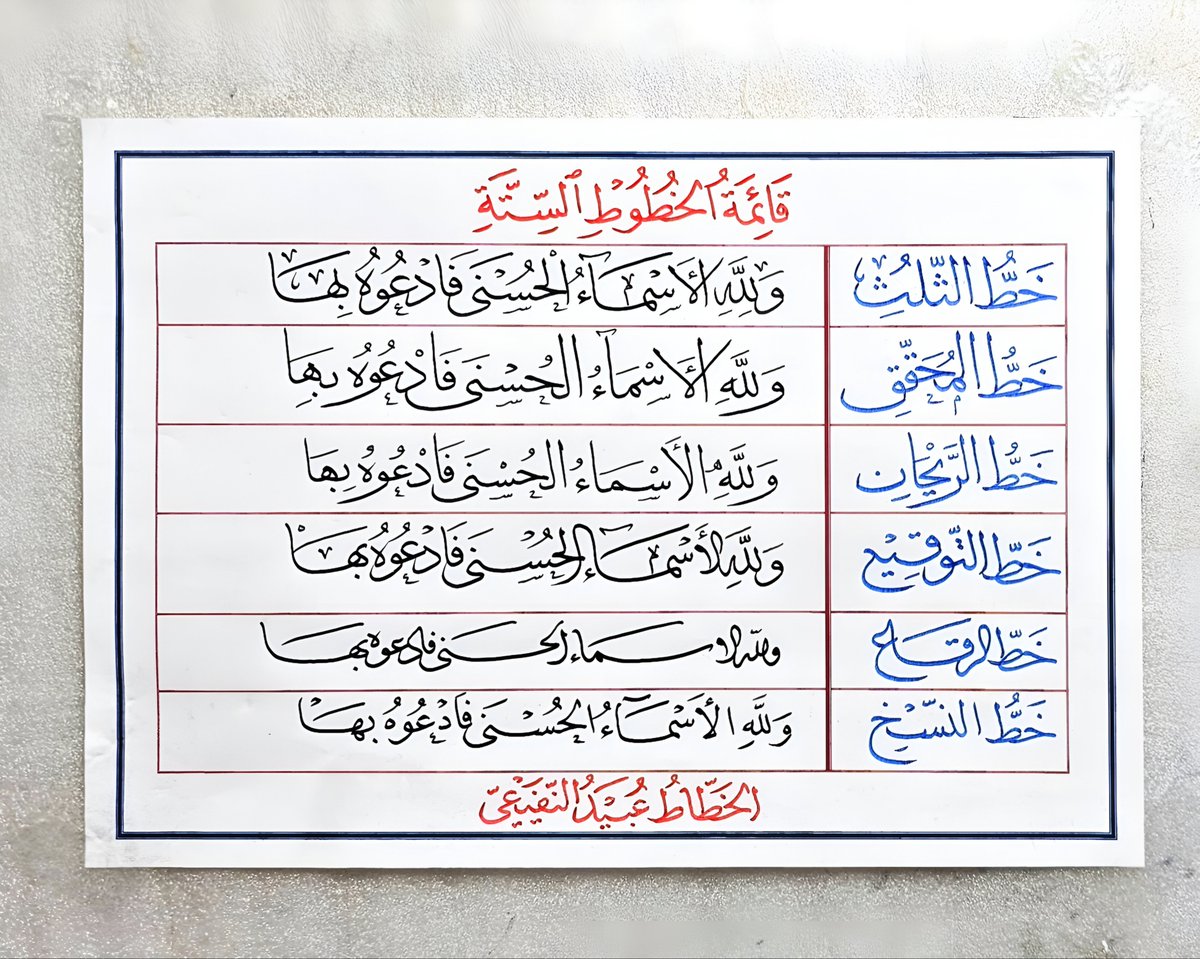 قَائِمَةُ الخُطُوْطِ ٱلسِّتَّةِ
خَطُّ الثّلُثِ وَلِلَّهِ الأَسْمَآءُ الْحُسْنَى فَادْعُوْهُ بِهَا
خَطُّ المُحَقَّقِ وَلِلَّهِ الأَسْمَاءُ الحُسْنَى فَادْعُوْهُ بِهَا
خَطُّ الرَّيْحَانِ وَلِلَّهِ الأَسْمَاءُ الحُسْنَى فَادْعُوْهُ بِهَا
خَطّ التّوْقِيْعِ وَلِلَّهِ الأَسْمَآءُ الحُسْنَى فَادْعُوْهُ بِهَا
خَطّ الرقاع ولله الاسماء الحسنى فادعوه بها
خَطُّ النسْخِ وَلِلَّهِ الأَسْمَآءُ الحُسْنَى فَادْعُوْهُ بِهَا
الخَطَّاطُ عُبَيْدُ النّفَيْعِيّ